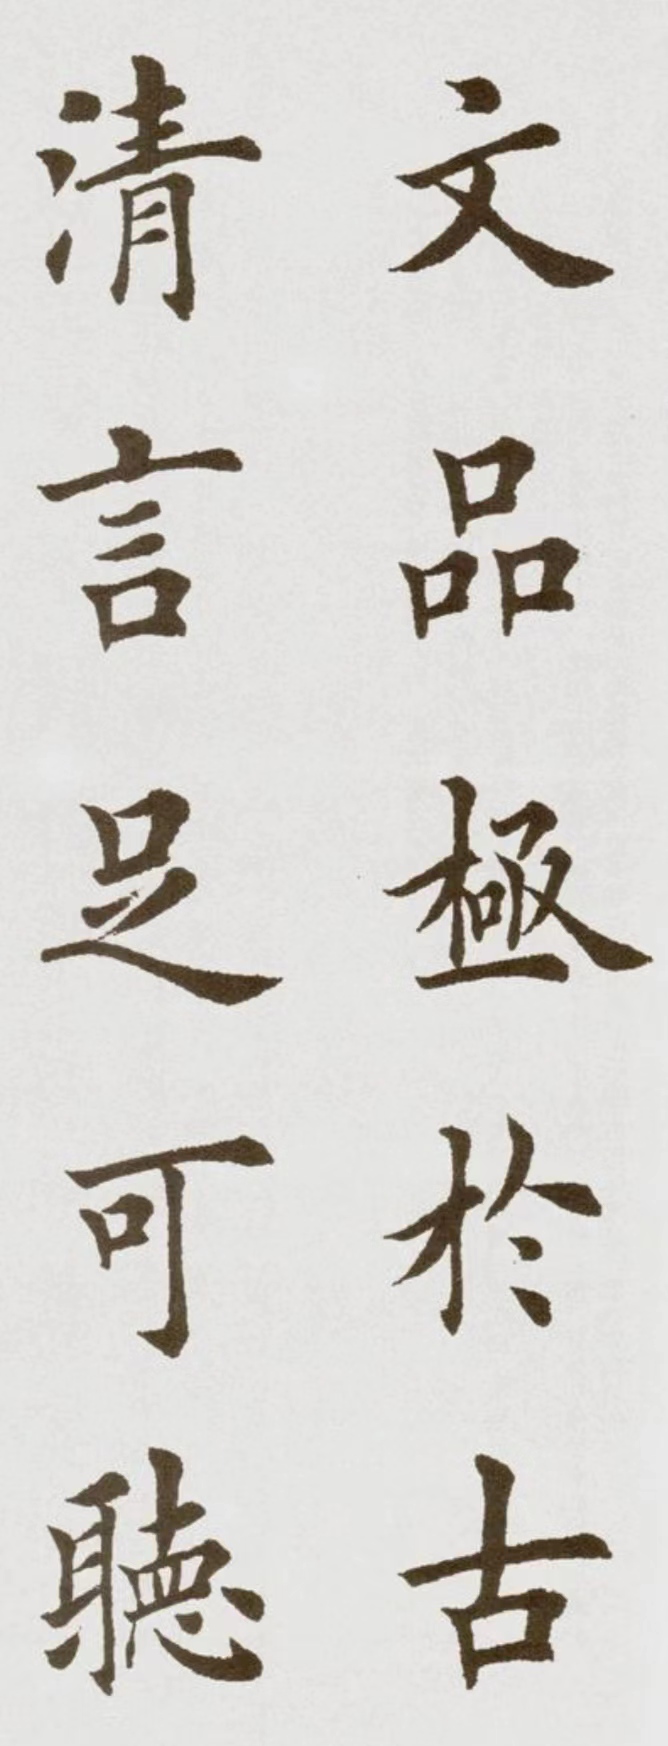 文品極於古
清言足可聽